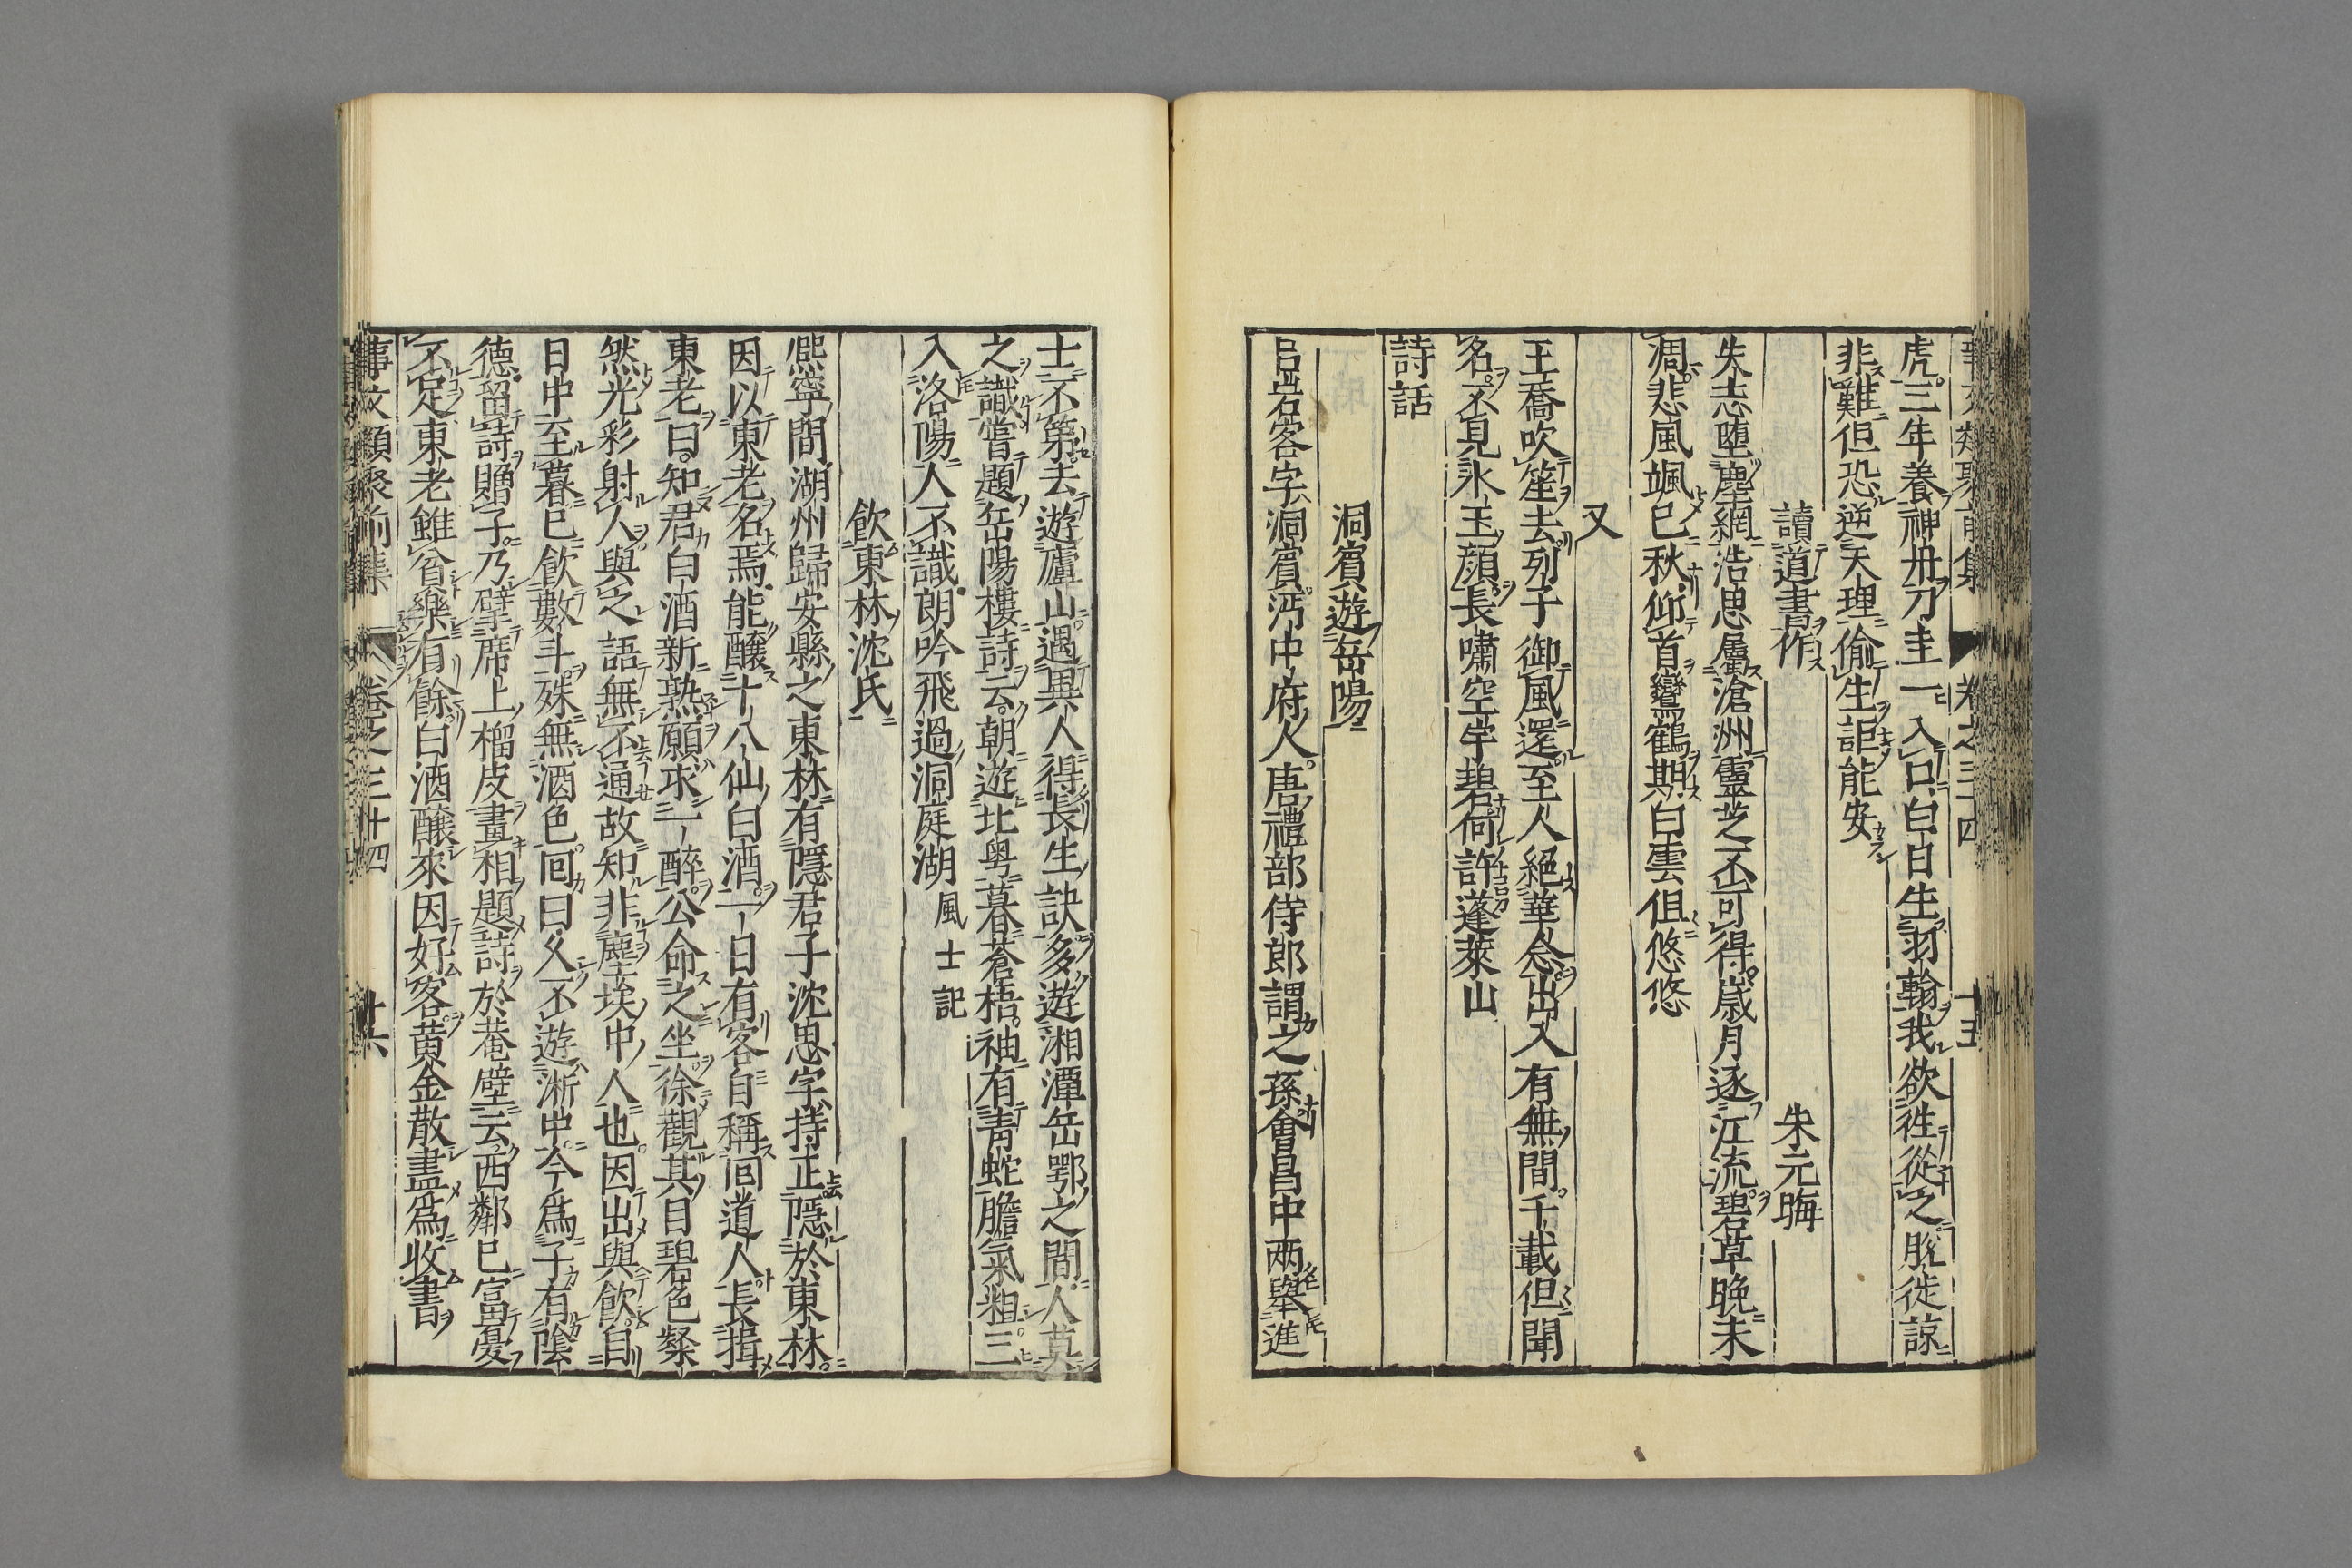 事文類聚前集 卷之三十四 十五
虎三年養神丹刀圭一入口白日生羽翰我欲徃從之脫徙諒
非難但恐逆天理偷生詎能安
讀道書作 朱元晦
失志墮塵網浩思屬滄洲靈芝不可得歲月逐江流碧草晚未
凋悲風颯已秋仰首鸞鶴期白雲但悠悠
又
王喬吹笙去列子御風還至人絕華念出入有無間千載但聞
名不見氷玉顔長嘯空宇碧何許蓬萊山
詩話
洞賓遊岳陽
呂岩客字洞賓沔中府人唐禮部侍郎謂之孫會昌中兩舉進
士不第去遊廬山遇異人得長生訣多遊湘潭岳鄂之間人莫
之識嘗題岳陽樓詩云朝遊北粤暮蒼梧袖有青蛇膽氣粗三
入洛陽人不識朗吟飛過洞庭湖 風士記
飲東林沈氏
熈寧間湖州歸安縣之東林有隱君子沈思字持正隱於東林
因以東老名焉能釀十八仙白酒一日有客自稱囘道人長揖
東老曰知君白酒新熟願求一醉公命之坐徐觀其目碧色粲
然光彩射人與之語無不通故知非塵埃中人也因出與飲自
日中至暮已飲數斗殊無酒色囘曰久不遊浙中今爲子有陰
德留詩贈子乃擘席上榴皮畫相題詩於菴壁云西鄰已富憂
不足東老雖貧樂有餘白酒釀來因好客黄金散盡爲收書
事文類聚前集 卷之三十四 十六